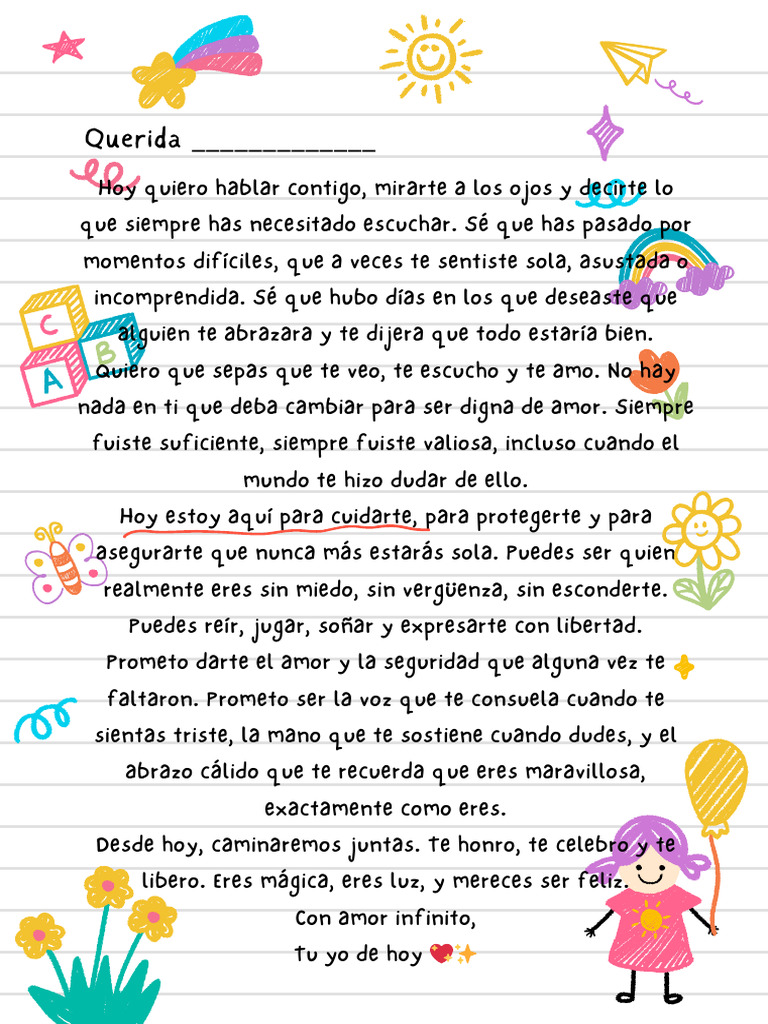 Querida _____________
Hoy quiero hablar contigo, mirarte a los ojos y decirte lo
que siempre has necesitado escuchar. Sé que has pasado por
momentos difíciles, que a veces te sentiste sola, asustada o
incomprendida. Sé que hubo días en los que deseaste que
alguien te abrazara y te dijera que todo estaría bien.
Quiero que sepas que te veo, te escucho y te amo. No hay
nada en ti que deba cambiar para ser digna de amor. Siempre
fuiste suficiente, siempre fuiste valiosa, incluso cuando el
mundo te hizo dudar de ello.
Hoy estoy aquí para cuidarte, para protegerte y para
asegurarte que nunca más estarás sola. Puedes ser quien
realmente eres sin miedo, sin vergüenza, sin esconderte.
Puedes reír, jugar, soñar y expresarte con libertad.
Prometo darte el amor y la seguridad que alguna vez te
faltaron. Prometo ser la voz que te consuela cuando te
sientas triste, la mano que te sostiene cuando dudes, y el
abrazo cálido que te recuerda que eres maravillosa,
exactamente como eres.
Desde hoy, caminaremos juntas. Te honro, te celebro y te
libero. Eres mágica, eres luz, y mereces ser feliz.
Con amor infinito,
Tu yo de hoy 💖✨
C
B
A